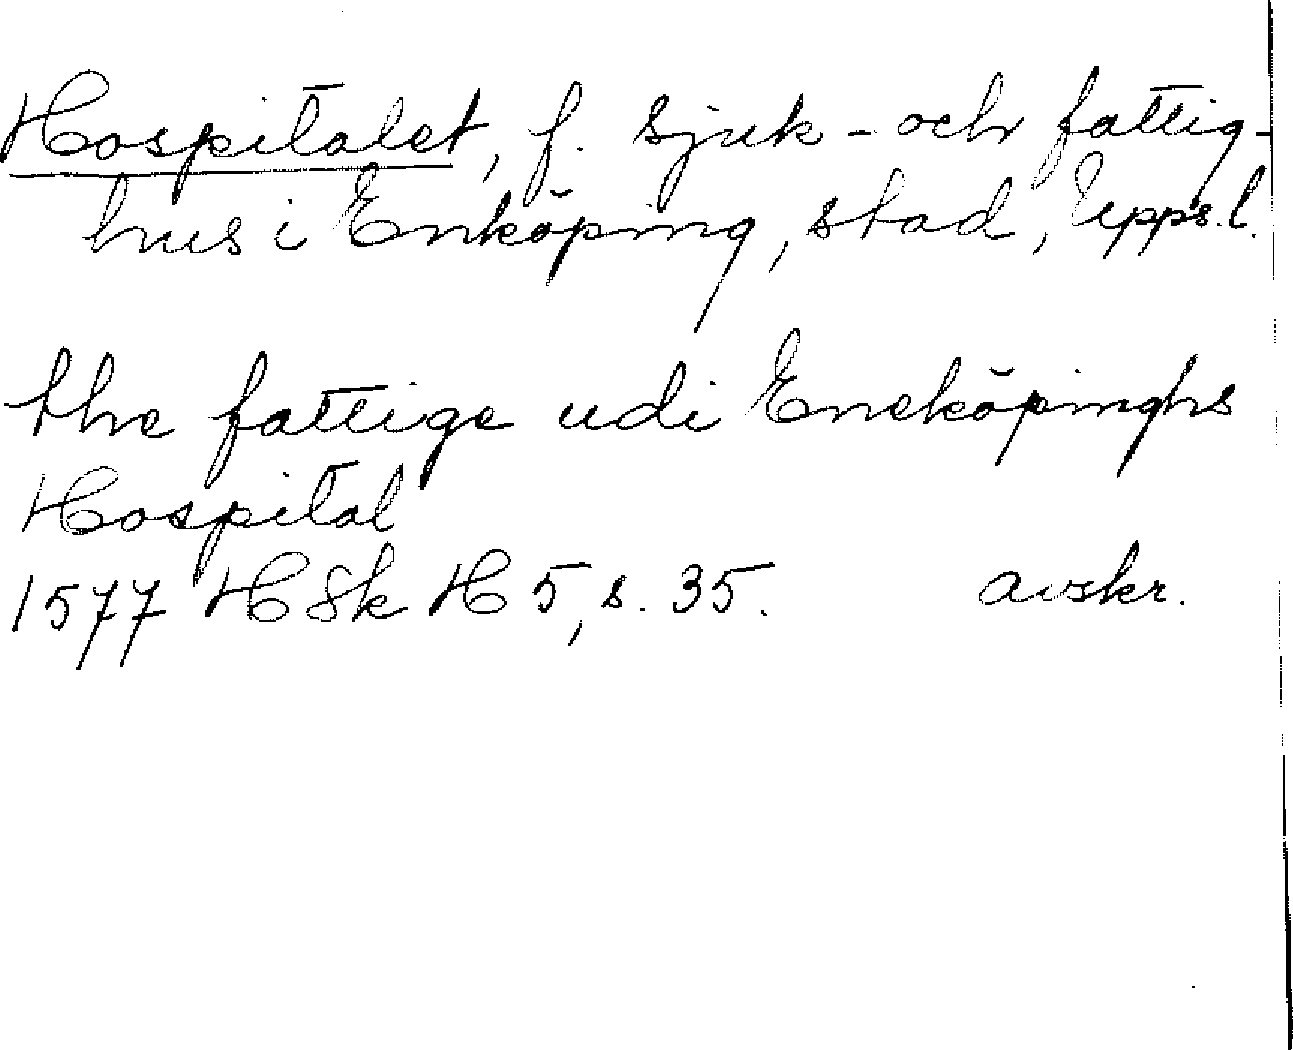 Hospitalet, f. sjuk- och fattig-
hus i Enköping, stad, Upps. l.
the fattige udi Eneköpinghs
Hospital
1577 HSk H 5, s. 35. avskr.